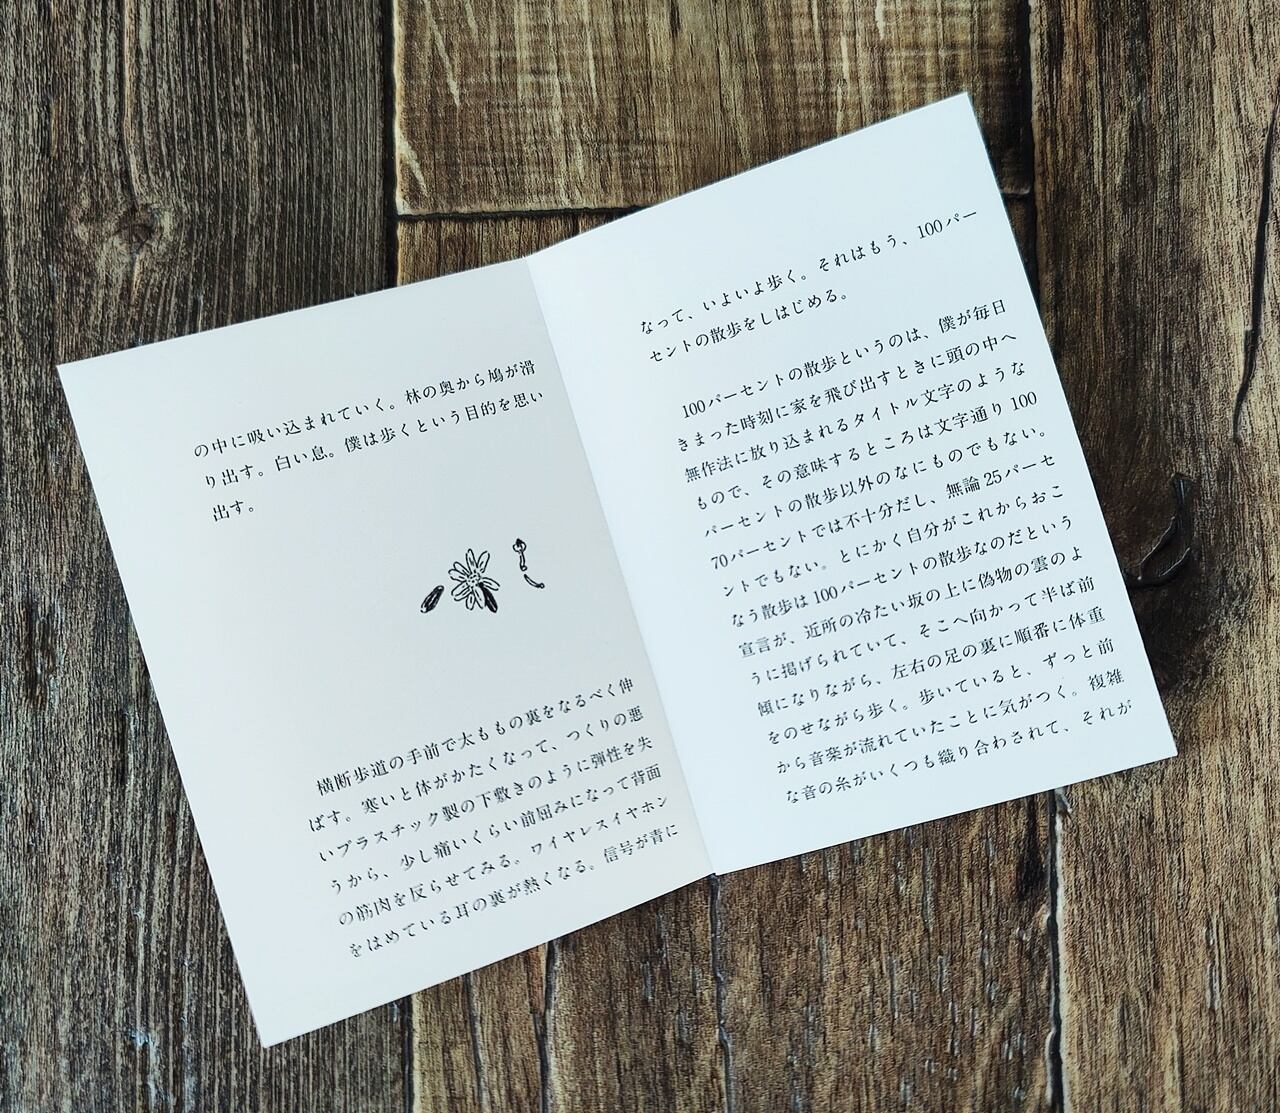 の中に吸い込まれていく。林の奥から鳩が滑
り出す。白い息。僕は歩くという目的を思い
出す。
横断歩道の手前で太ももの裏をなるべく伸
ばす。寒いと体がかたくなって、つくりの悪
いプラスチック製の下敷きのように弾性を失
うから、少し痛いくらい前屈みになって背面
の筋肉を反らせてみる。ワイヤレスイヤホン
をはめている耳の裏が熱くなる。信号が青に
なって、いよいよ歩く。それはもう、100パー
セントの散歩をしはじめる。
100パーセントの散歩というのは、僕が毎日
きまった時刻に家を飛び出すときに頭の中へ
無作法に放り込まれるタイトル文字のような
もので、その意味するところは文字通り100
パーセントの散歩以外のなにものでもない。
70パーセントでは不十分だし、無論25パーセ
ントでもない。とにかく自分がこれからおこ
なう散歩は100パーセントの散歩なのだという
宣言が、近所の冷たい坂の上に偽物の雲のよ
うに掲げられていて、そこへ向かって半ば前
傾になりながら、左右の足の裏に順番に体重
をのせながら歩く。歩いていると、ずっと前
から音楽が流れていたことに気がつく。複雑
な音の糸がいくつも織り合わされて、それが